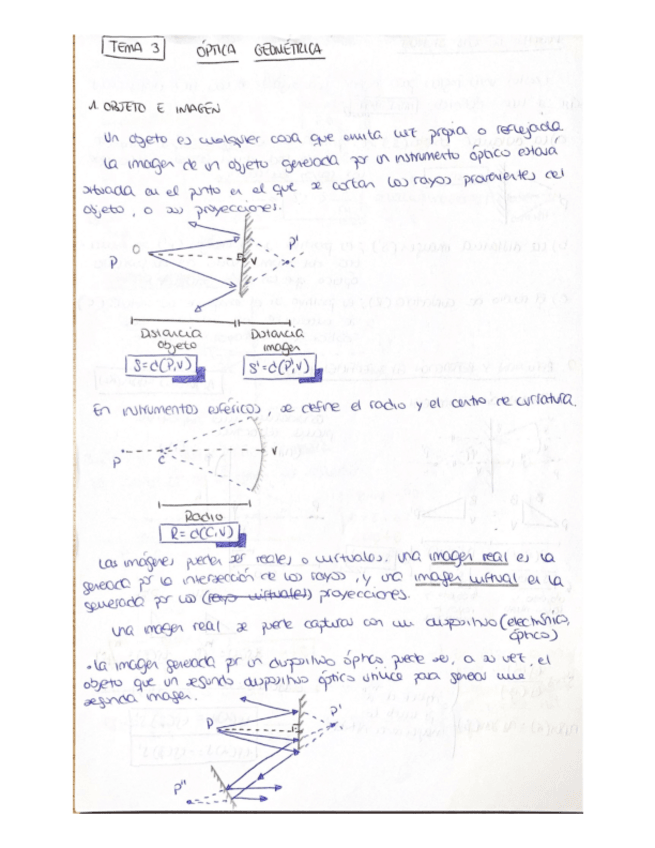 TEMA 3 ÓPTICA GEOMÉTRICA
1. OBJETO E IMAGEN
Un objeto es cualquier cosa que emita luz propia o reflejada.
La imagen de un objeto generada por un instrumento óptico estará
situada en el punto en el que se cortan los rayos provenientes del
objeto, o sus proyecciones.
O
P
V
P'
Distancia objeto
Distancia imagen
S=d(P,V)
S'=d(P',V)
En instrumentos esféricos, se define el radio y el centro de curvatura.
P C V
Radio
R=d(C,V)
Las imágenes pueden ser reales o virtuales, una imagen real es la
generada por la intersección de los rayos, y una imagen virtual es la
generada por las (rayo virtuales) proyecciones.
Una imagen real se puede capturar con un dispositivo (electrónico,
óptico)
• La imagen generada por un dispositivo óptico puede ser, a su vez, el
objeto que un segundo dispositivo óptico utilice para generar una
segunda imagen.
P
P'
P''